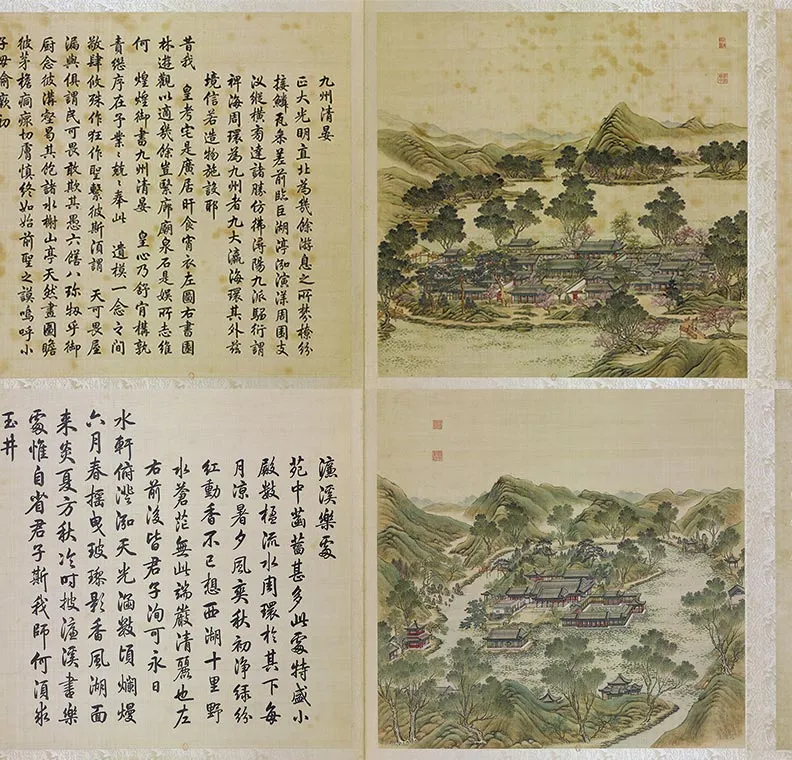 九州清晏
正大光明直北為幾餘游息之所棼橑紛
接鱗瓦參差前臨巨湖渟泓演漾周圍支
汊縱橫旁達諸勝仿佛潯陽九派騶衍謂
裨海周環為九州者九大瀛海環其外茲
境信若造物施設耶
昔我 皇考宅是廣居旰食宵衣左圖右書園
林遊觀以適幾餘豈繄廊廟泉石是娛所志維
何 煌煌御書九州清晏 皇心乃舒肯構孰
責繼序在予業〻兢〻奉此 遺模一念之間
敬肆攸殊作狂作聖繄彼斯須謂 天可畏屋
漏與俱謂民可畏敢欺其愚六膳八珍牣乎御
廚念彼溝壑曷其飽諸水榭山亭天然畫圖瞻
彼茅檐痌瘝切膚慎終如始前聖之謨嗚呼小
子毋渝厥初
濂溪樂處
苑中菡萏甚多此處特盛小
殿數楹流水周環於其下每
月涼暑夕風爽秋初淨綠紛
紅動香不已想西湖十里野
水蒼茫無此端嚴清麗也左
右前後皆君子洵可永日
水軒俯澄泓天光涵數頃爛熳
六月春搖曳玻瓈影香風湖面
來炎夏方秋冷時披濂溪書樂
處惟自省君子斯我師何須求
玉井